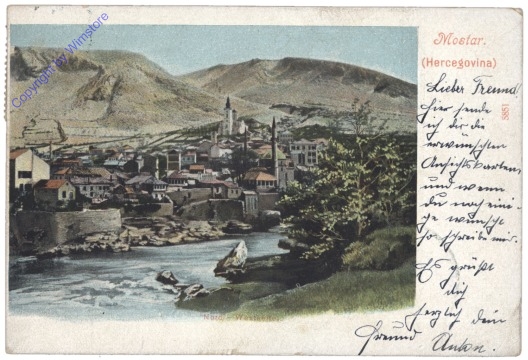 Copyright by Wimstore
Mostar.
(Hercegovina)
3851
Lieber Freund
hier sende
ich dir die
erwünschten
Ansichtskarten,
und wenn
du noch eini-
ge wünscht
so schreibe mir.
Es grüßt
dich
herzlich dein
Freund Anton.